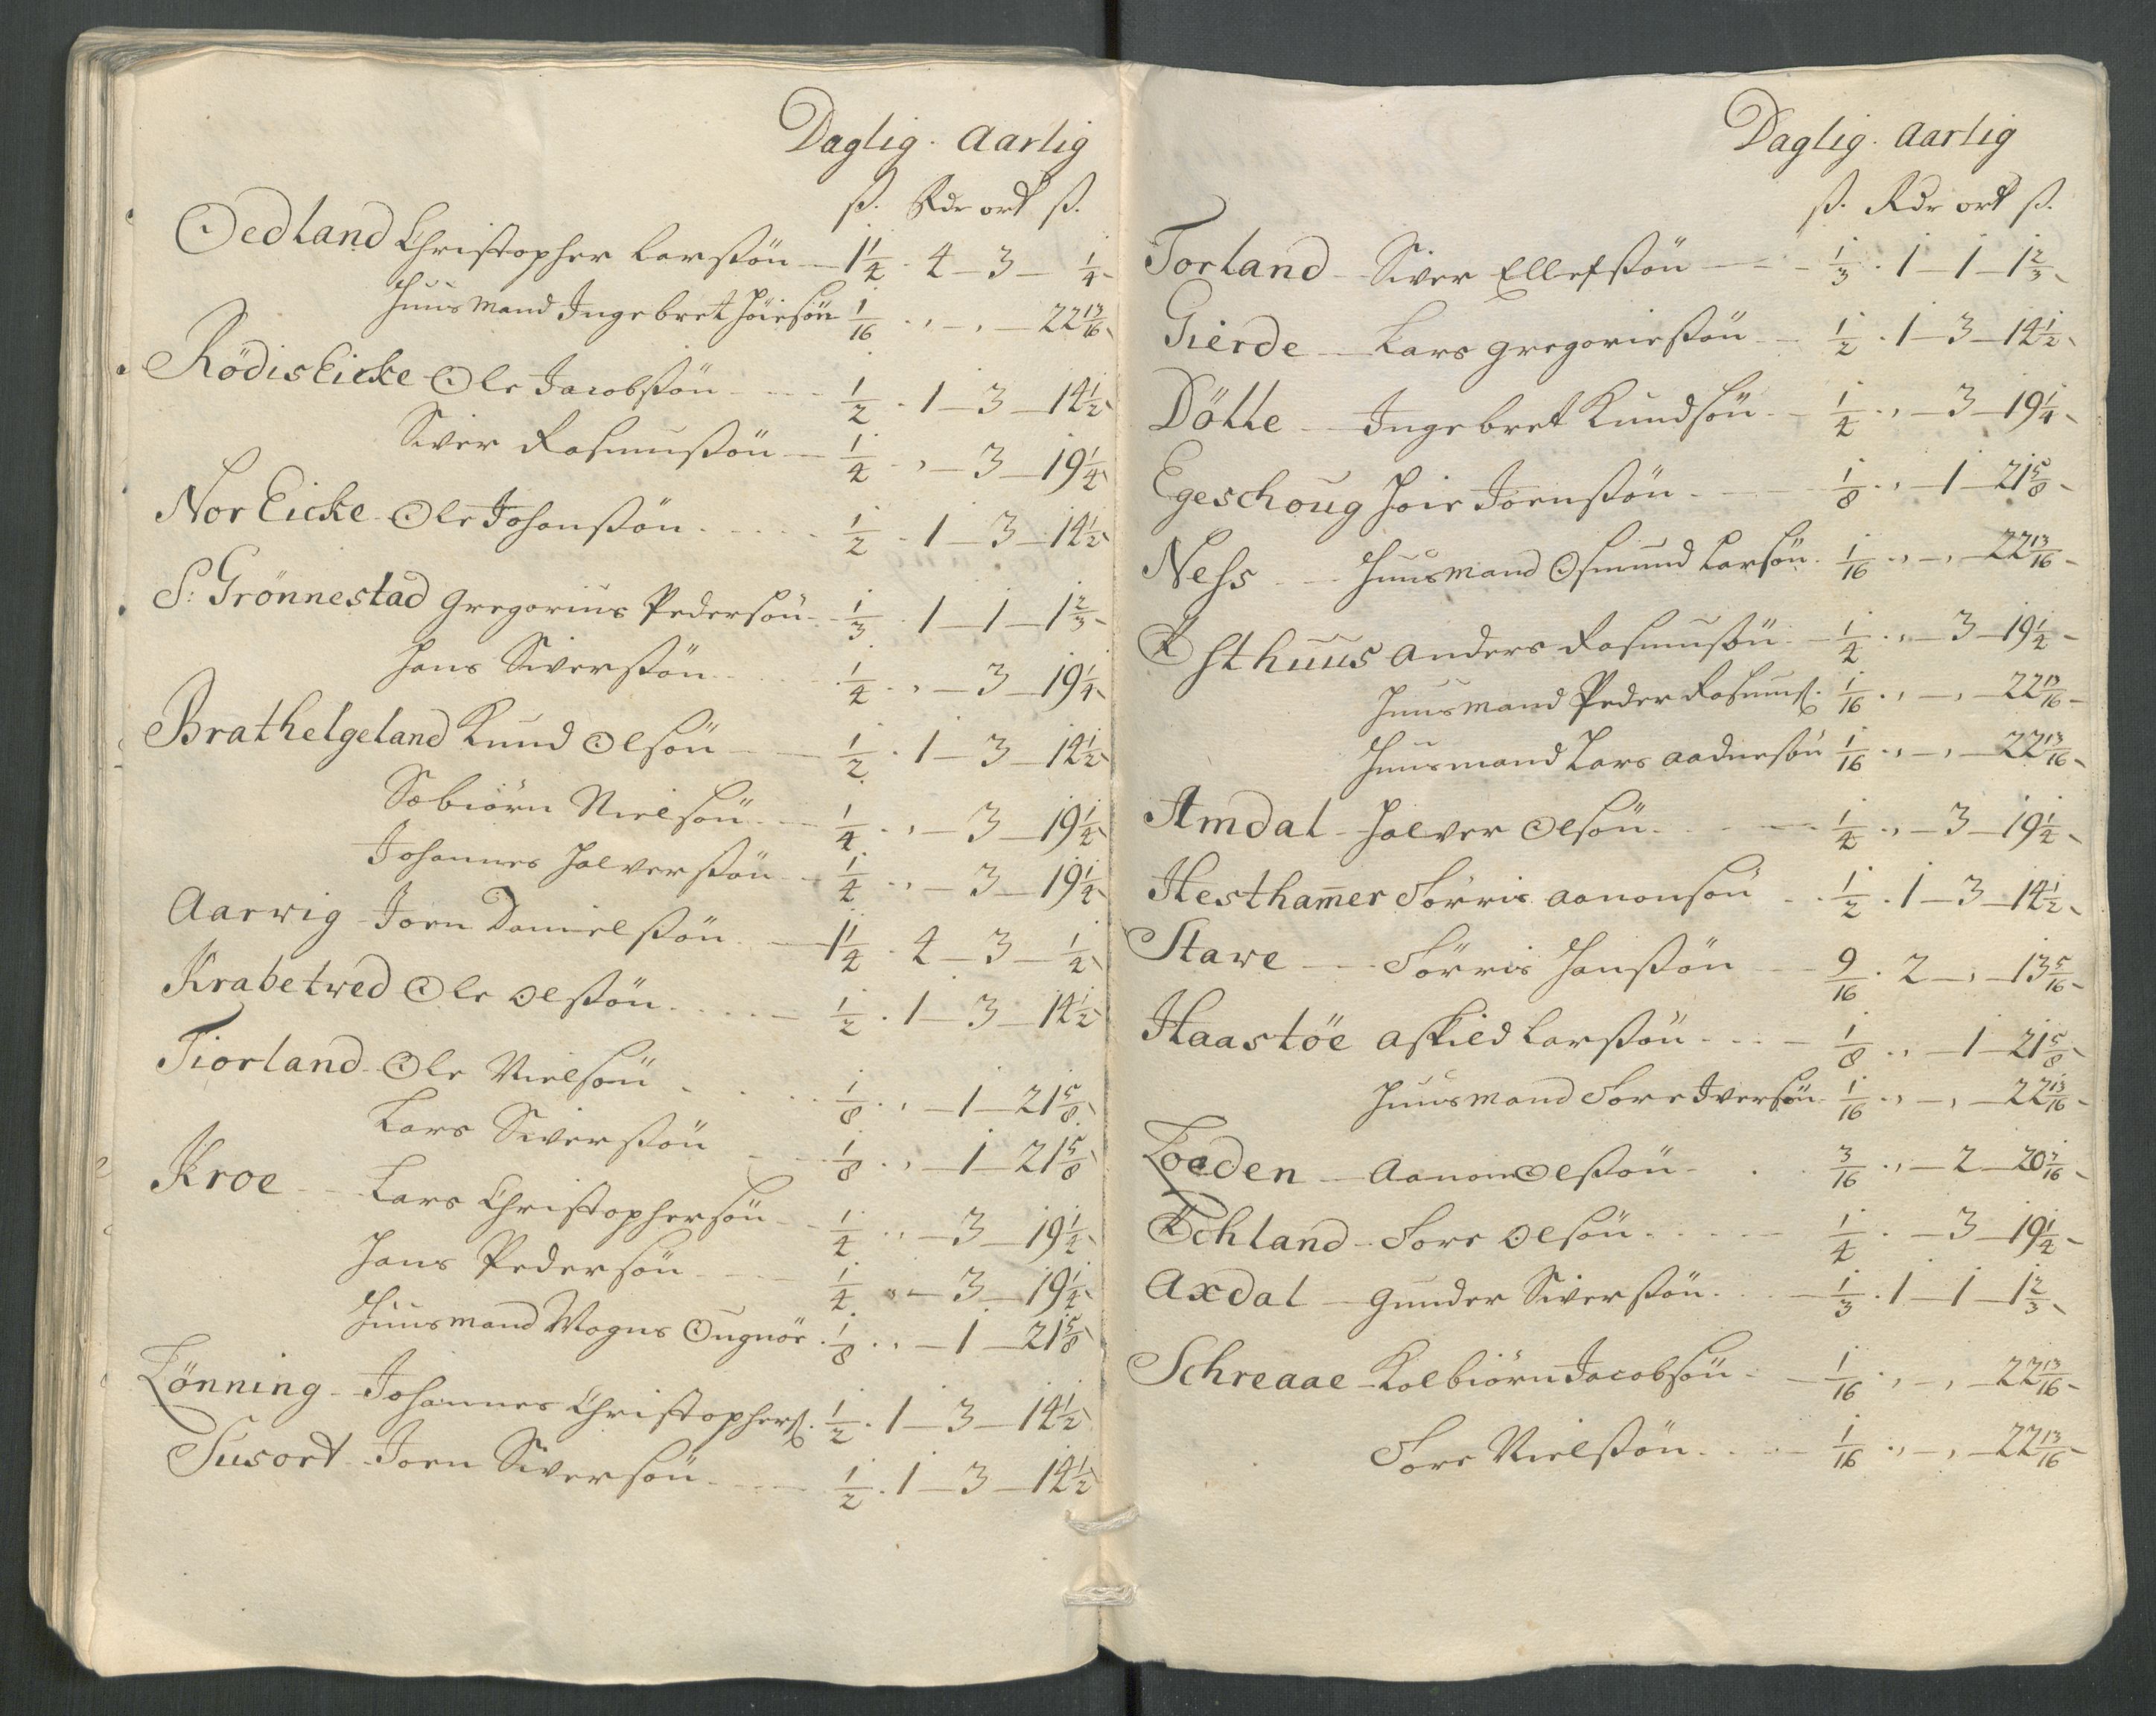 Daglig. Aarlig
ß. Rdr ort ß.
Oedland Christopher Larssön — 1 1/4 - 4 — 3 — 1/4 -
Huusmand Ingebret Höiesön 1/16 . , — , — 22 13/16
RödisEicke Ole Jacobssön - - - 1/2 . 1 — 3 — 14 1/2
Siver Rasmussön — 1/4 . , — 3 — 19 1/4
NorEicke Ole Johanssön . . . 1/2 . 1 — 3 — 14 1/2
S: Grönnestad Gregorius Pedersön . 1/3 . 1 — 1 — 1 2/3 -
Hans Siverssön . . . 1/4 . , — 3 — 19 1/4
Brathelgeland Knud Olsön — 1/2 . 1 — 3 — 14 1/2
Sebiörn Nielsön — 1/4 . , — 3 — 19 1/4
Johannes Halverssön 1/4 . , — 3 — 19 1/4
Aarvig Joen Danielssön — 1 1/4 . 4 — 3 — 1/4
Krabetved Ole Olssön . . . . 1/2 . 1 — 3 — 14 1/2
Tiorland Ole Nielsön . . . . 1/8 . , — 1 — 21 5/8
Lars Siverssön — 1/8 . , — 1 — 21 5/8
Kroe — Lars Christophersön — 1/4 . , — 3 — 19 1/4
Hans Pedersön — 1/4 . , — 3 — 19 1/4
Huusmand Magns . 1/8 . , — 1 — 21 5/8
Lönning Johannes Christophers: 1/2 . 1 — 3 — 14 1/2
Susort Joen Siversön . . . 1/2 . 1 — 3 — 14 1/2
Daglig. Aarlig
ß. Rdr ort ß.
Torland Siver Ellefssön — 1/3 . 1 — 1 — 1 2/3
Gierde Lars Gregoriessön — 1/2 . 1 — 3 — 14 1/2
Dölle Ingebret Knudsön — 1/4 . , — 3 — 19 1/4
Egeschoug Hoie Joenssön . — 1/8 . , — 1 — 21 5/8
Nehs Huusmand Osmund Larsön . 1/16 . , — , — 22 13/16
Østhuus Anders Rasmusön . 1/4 . , — 3 — 19 1/4
Huusmand Peder Rasmus: 1/16 . , — , — 22 13/16
Huusmand Lars Aadnesön 1/16 . , — , — 22 13/16
Amdal Halver Olsön . . . 1/4 . , — 3 — 19 1/4
Hesthamer Törris Aanonsön . . 1/2 . 1 — 3 — 14 1/2
Stave Törris Hanssön — 9/16 . 2 — , — 13 5/16
Haastöe Askied Larssön . . . 1/8 . , — 1 — 21 5/8
Huusmand Tore Iversön . 1/16 . , — , — 22 13/16
Loeden Aanon Olssön . . . 3/16 . , — 2 — 20 7/16
Øchland Tore Olsön . . . . 1/4 . — 3 — 19 1/4
Axdal Gunder Siverssön . . . 1/3 . 1 — 1 — 1 2/3
Schreaae Kolbiörn Jacobsön — 1/16 . , — , — 22 13/16
Tore Nielssön . . . 1/16 . , — , — 22 13/16